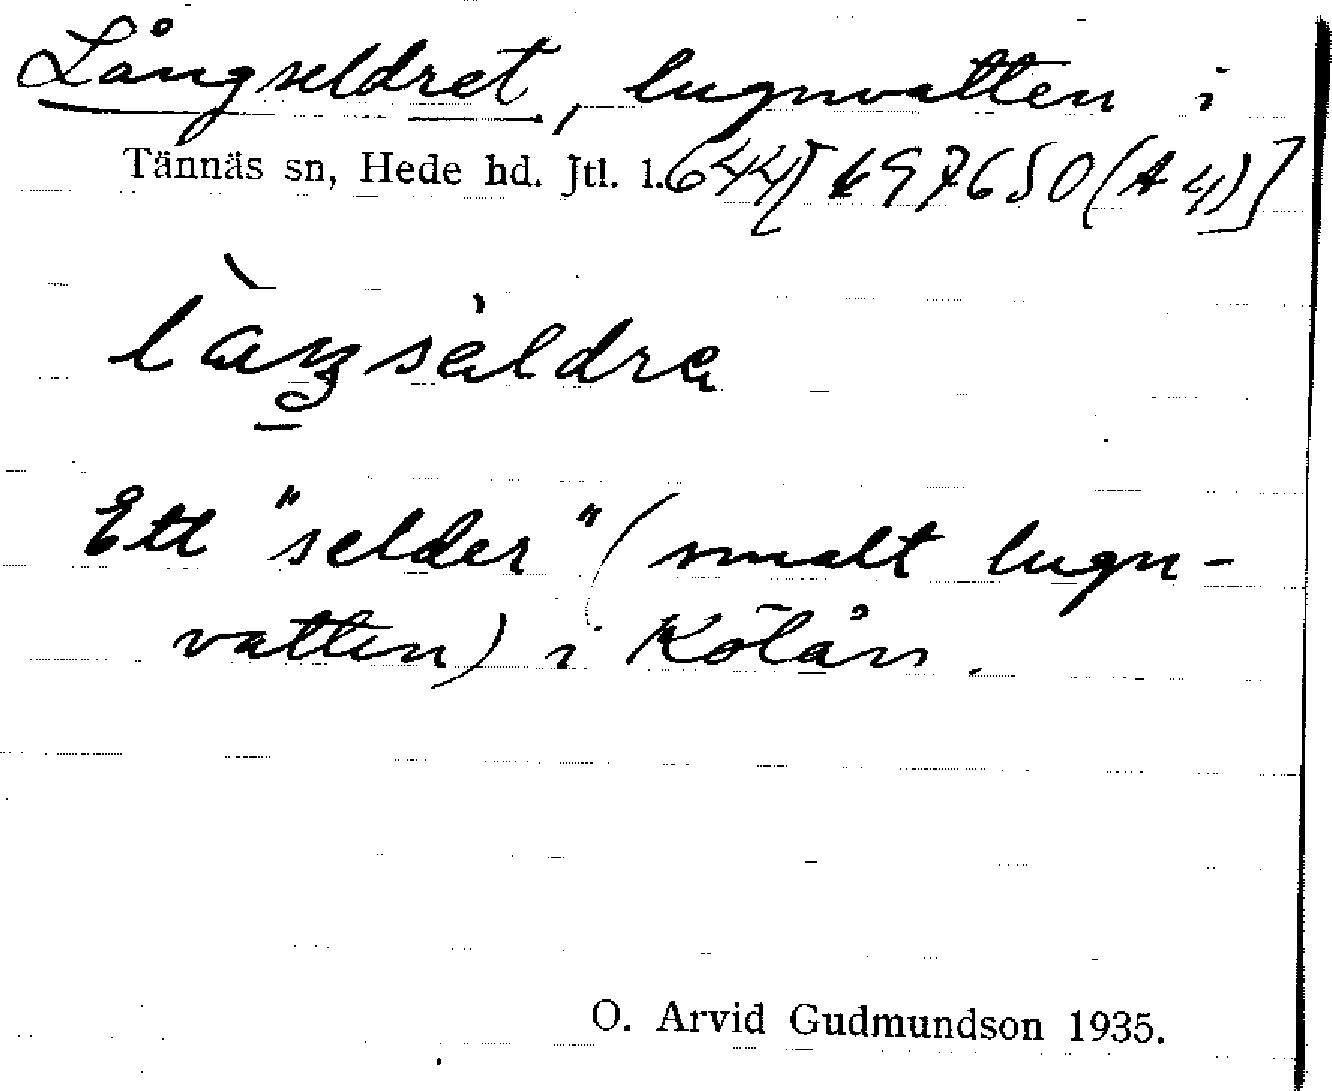 Långseldret, lugnvatten i
Tännäs sn, Hede hd. Jtl. l. 644[697650(A4)]
làŋsèldra
Ett "selder" (smalt lugn-
vatten) i Kölån.
O. Arvid Gudmundson 1935.